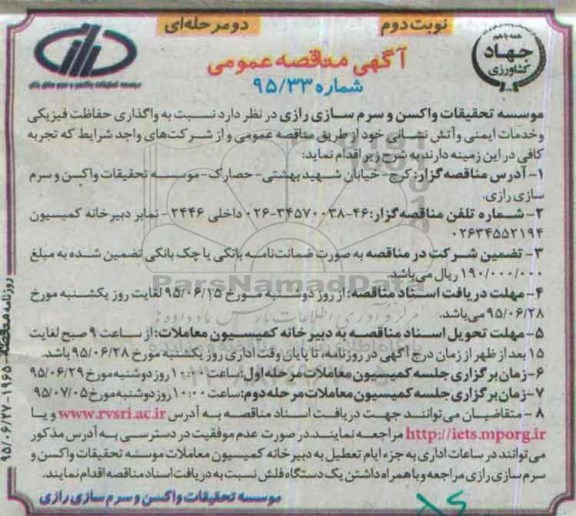 نوبت دوم
دو مرحله‌ای
همه با هم
جهاد
کشاورزی
موسسه تحقیقات واکسن و سرم سازی رازی
آگهی مناقصه عمومی
شماره ۹۵/۳۳
موسسه تحقیقات واکسن و سرم سازی رازی در نظر دارد نسبت به واگذاری حفاظت فیزیکی
و خدمات ایمنی و آتش نشانی خود از طریق مناقصه عمومی و از شرکت‌های واجد شرایط که تجربه
کافی در این زمینه دارند به شرح زیر اقدام نماید:
۱- آدرس مناقصه گزار: کرج - خیابان شهید بهشتی- حصارک- موسسه تحقیقات واکسن و سرم
سازی رازی.
۲- شماره تلفن مناقصه گزار: ۴۶-۰۲۶-۳۴۵۷۰۰۳۸ داخلی ۲۴۴۶ - نمابر دبیرخانه کمیسیون
۰۲۶۳۴۵۵۲۱۹۴
۳- تضمین شرکت در مناقصه به صورت ضمانت‌نامه بانکی یا چک بانکی تضمین شده به مبلغ
۱۹۰/۰۰۰/۰۰۰ ریال می‌باشد.
۴- مهلت دریافت اسناد مناقصه: از روز دوشنبه مورخ ۹۵/۰۶/۲۵ لغایت روز یکشنبه مورخ
۹۵/۰۶/۲۸ می‌باشد.
۵- مهلت تحویل اسناد مناقصه به دبیرخانه کمیسیون معاملات: از ساعت ۹ صبح لغایت
۱۵ بعد از ظهر از زمان درج آگهی در روزنامه، تا پایان وقت اداری روز یکشنبه مورخ ۹۵/۰۶/۲۸ باشد.
۶- زمان برگزاری جلسه کمیسیون معاملات مرحله اول: ساعت ۱۰:۰۰ روز دوشنبه مورخ ۹۵/۰۶/۲۹
۷- زمان برگزاری جلسه کمیسیون معاملات مرحله دوم: ساعت ۱۰:۰۰ روز دوشنبه مورخ ۹۵/۰۷/۰۵
۸- متقاضیان می‌توانند جهت دریافت اسناد مناقصه به آدرس www.rvsri.ac.ir و یا
http://iets.mporg.ir مراجعه نمایند در صورت عدم موفقیت در دسترسی به آدرس مذکور
می‌توانند در ساعات اداری به جزء ایام تعطیل به دبیرخانه کمیسیون معاملات موسسه تحقیقات واکسن و
سرم سازی رازی مراجعه و با همراه داشتن یک دستگاه فلش نسبت به دریافت اسناد مناقصه اقدام نمایند.
موسسه تحقیقات واکسن و سرم سازی رازی
روزنامه مناقصه ۱۹۶۵- ۹۵/۰۶/۲۷
ParsNamadData